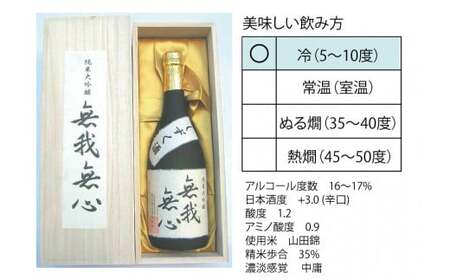 純米大吟醸
無我無心
しずく酒
純米大吟醸
無我無心
美味しい飲み方
〇 冷(5〜10度)
常温(室温)
ぬる燗(35〜40度)
熱燗(45〜50度)
アルコール度数 16〜17%
日本酒度 +3.0(辛口)
酸度 1.2
アミノ酸度 0.9
使用米 山田錦
精米歩合 35%
濃淡感覚 中庸